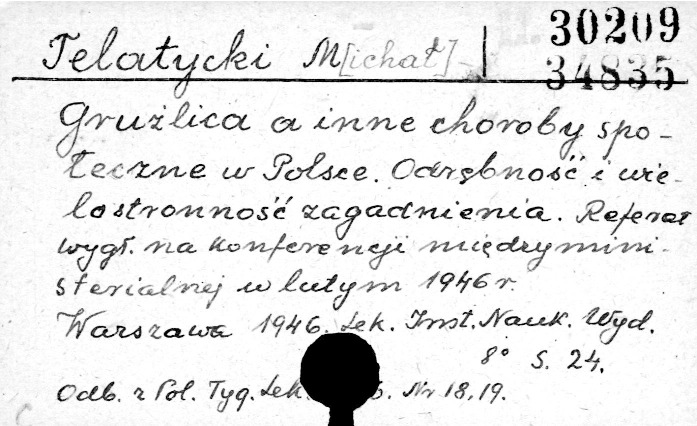 Telatycki M[ichał] 30209
34835
Gruźlica a inne choroby spo-
łeczne w Polsce. Odrębność i wie-
lostronność zagadnienia. Referat
wygł. na konferencji międzymini-
sterialnej w lutym 1946 r.
Warszawa 1946. Lek. Inst. Nauk. Wyd.
8° S. 24.
Odb. z Pol. Tyg. Lek. Nr 18, 19.